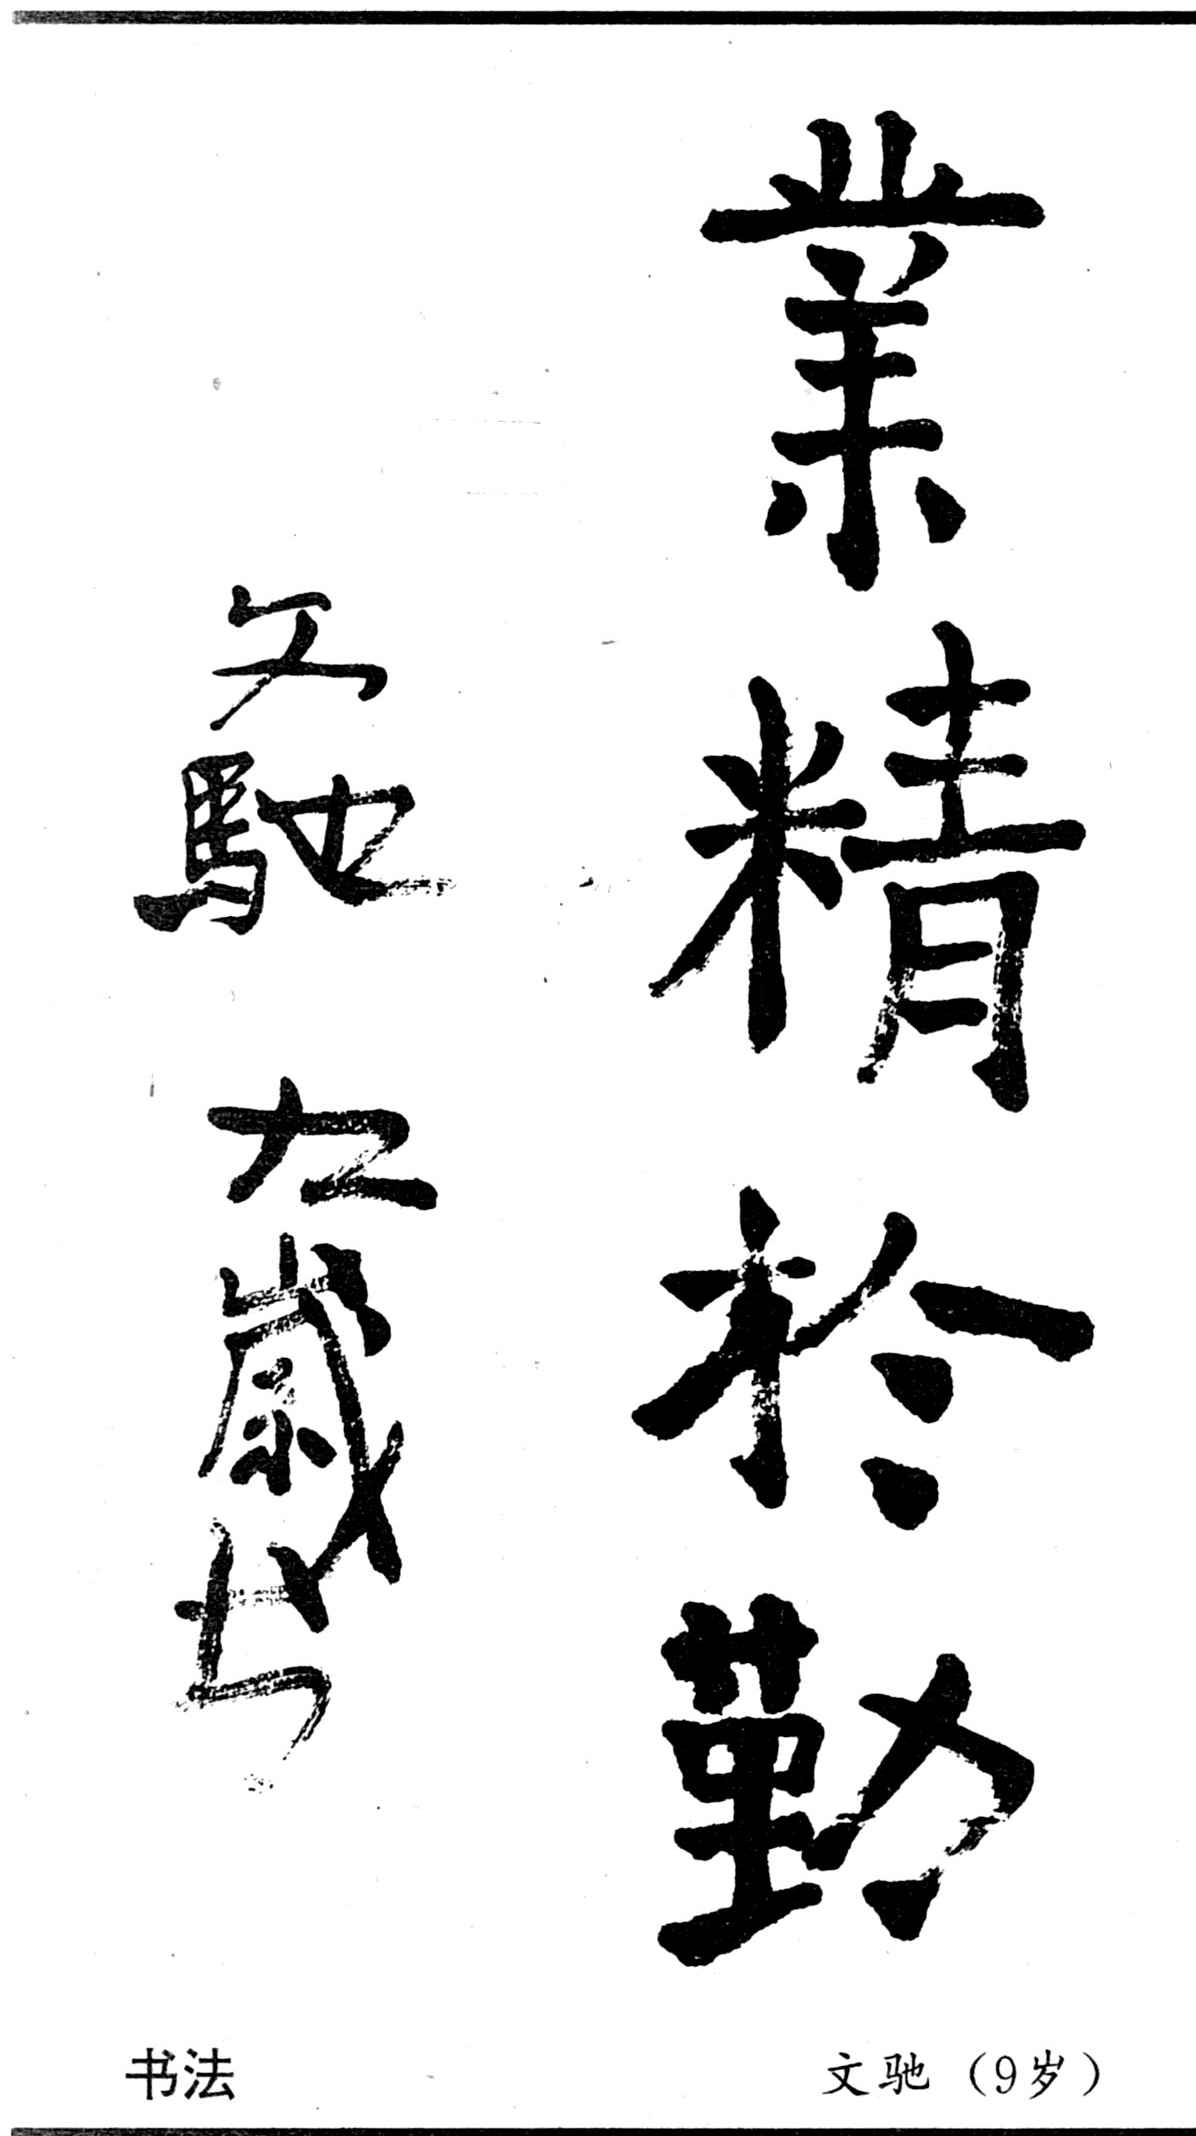 業精於勤
文馳 九歲书
书法
文驰（9岁）